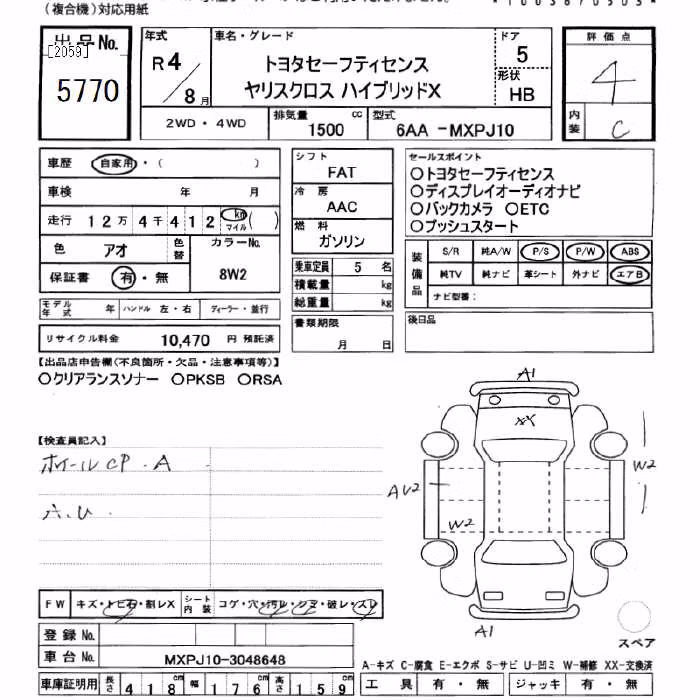 (複合機)対応用紙
出品No. [2059]
5770
年式 R4/8月
車名・グレード
トヨタセーフティセンス
ヤリスクロス ハイブリッドX
ドア 5
形状 HB
評価点 4
内装 C
2WD・4WD
排気量 1500 cc
型式 6AA -MXPJ10
車歴 自家用・( )
車検 年 月
走行 12万4千412 km マイル ( )
色 アオ 色替
カラーNo. 8W2
保証書 有・無
モデル年式 年 ハンドル 左・右 ディーラー・並行
リサイクル料金 10,470 円 預託済
シフト FAT
冷房 AAC
燃料 ガソリン
乗車定員 5 名
積載量 kg
総重量 kg
書類期限 月 日
セールスポイント
○トヨタセーフティセンス
○ディスプレイオーディオナビ
○バックカメラ ○ETC
○プッシュスタート
装備品 S/R 純A/W P/S P/W ABS
純TV 純ナビ 革シート 外ナビ エアB
ナビ型番:
後日品
【出品店申告欄(不良箇所・欠品・注意事項等)】
○クリアランスソナー ○PKSB ○RSA
【検査員記入】
ホイールCP . A
六.U.
A1
XX
W2
AU2
W2
A1
スペア
FW キズ・トビ石・割レX シート内装 コゲ・穴・汚レ・シミ・破レ・スレ
登録No.
車台No. MXPJ10-3048648
車庫証明用 長さ 418cm 幅 176cm 高さ 159cm
A-キズ C-腐食 E-エクボ S-サビ U-凹ミ W-補修 XX-交換済
工具 有・無 ジャッキ 有・無